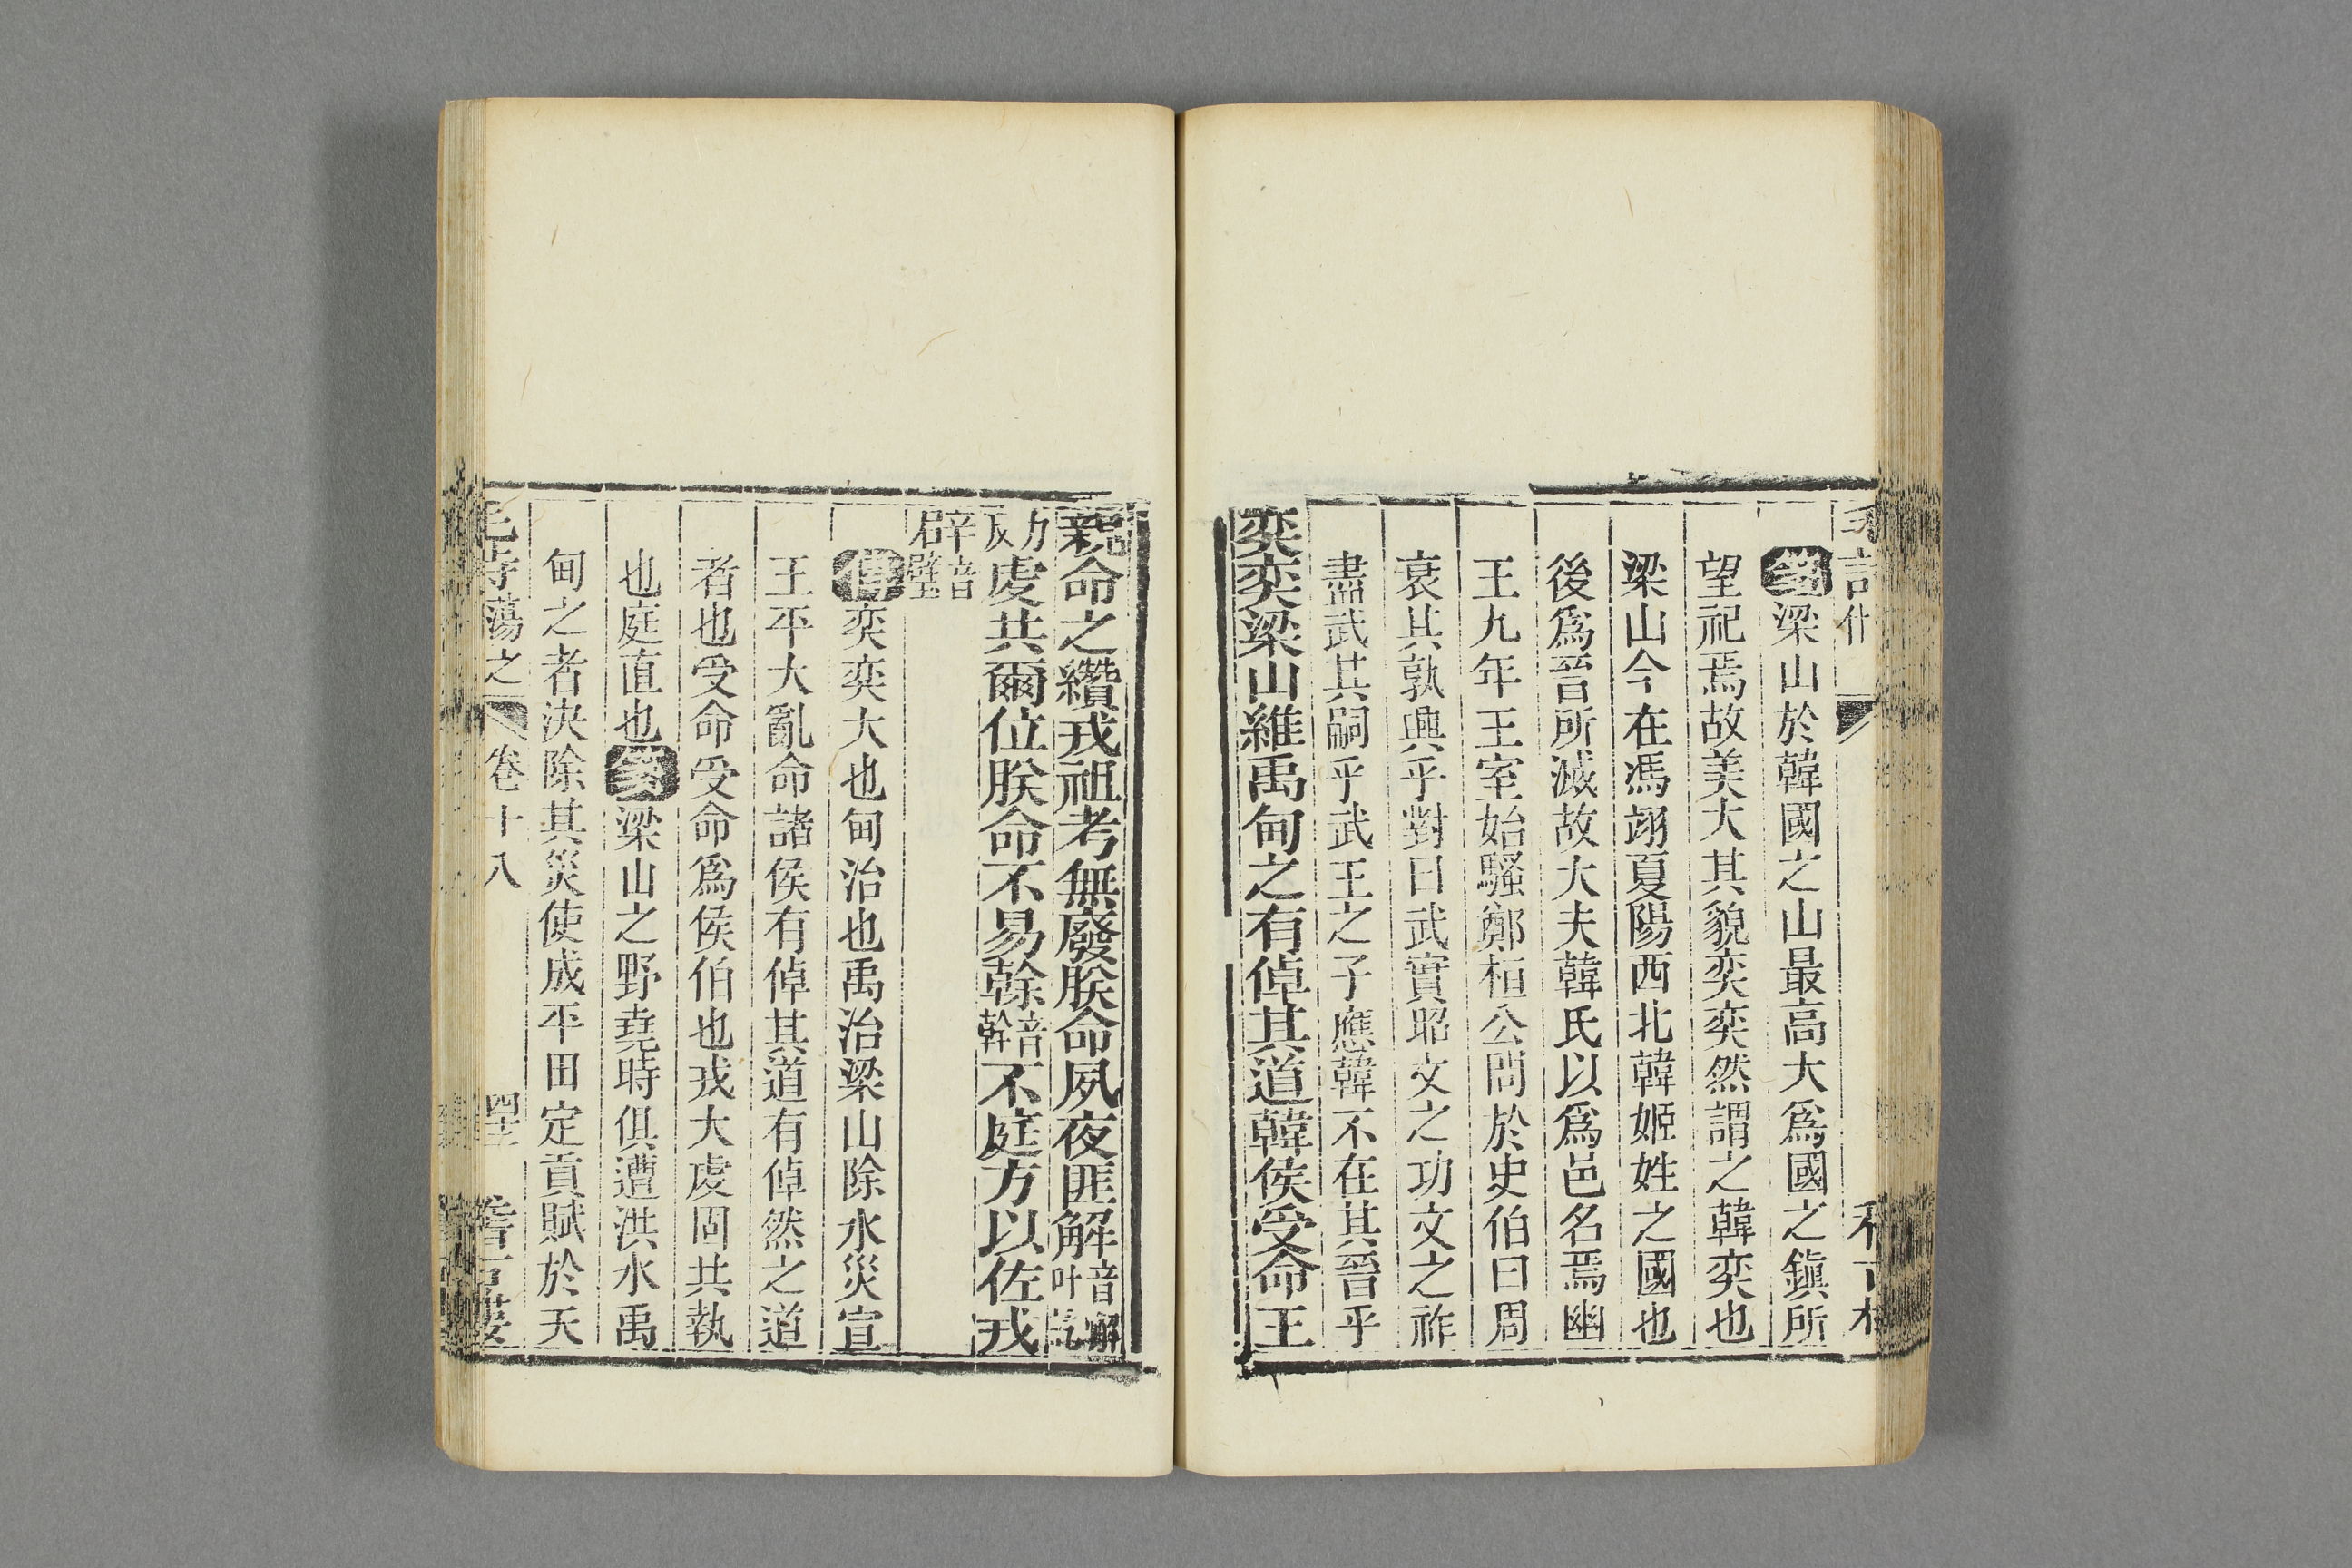 箋梁山於韓國之山最高大爲國之鎮所
望祀焉故美大其貌奕奕然謂之韓奕也
梁山今在馮翊夏陽西北韓姬姓之國也
後爲晉所滅故大夫韓氏以爲邑名焉幽
王九年王室始騷鄭桓公問於史伯曰周
衰其孰興乎對曰武實昭文之功文之祚
盡武其嗣乎武王之子應韓不在其晉乎
奕奕梁山維禹甸之有倬其道韓侯受命王
親命之纘戎祖考無廢朕命夙夜匪解音懈叶
力反虔共爾位朕命不易榦音幹不庭方以佐戎
辟音璧
傳奕奕大也甸治也禹治梁山除水災宣
王平大亂命諸侯有倬其道有倬然之道
者也受命受命爲侯伯也戎大虔固共執
也庭直也箋梁山之野堯時俱遭洪水禹
甸之者決除其災使成平田定貢賦於天
毛詩蕩之 卷十八